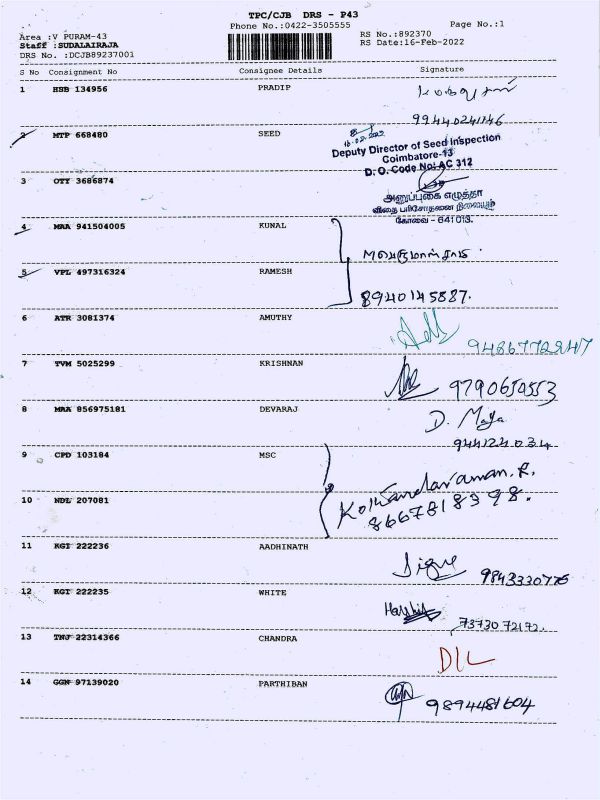 TPC/CJB DRS - P43
Phone No.:0422-3505555
Page No.:1
Area :V PURAM-43
RS No.:892370
Staff :SUDALAIRAJA
RS Date:16-Feb-2022
DRS No. :DCJB89237001
S No Consignment No Consignee Details Signature
1 HSB 134956 PRADIP
9944024146
2 MTP 668480 SEED
16.02.2022
Deputy Director of Seed Inspection
Coimbatore-13
D. O. Code No: AC 312
3 OTY 3686874
அனுப்புகை எழுத்தர்
விதை பரிசோதனை நிலையம்
கோவை - 641 013.
4 MAA 941504005 KUNAL
5 VPL 497316324 RAMESH
8940145887.
6 ATR 3081374 AMUTHY
9486772947
7 TVM 5025299 KRISHNAN
9790650553
8 MAA 856975181 DEVARAJ
D. Maya
944124034
9 CPD 103184 MSC
10 NDL 207081
8667818398.
11 KGI 222236 AADHINATH
9843330776
12 KGI 222235 WHITE
7373072172.
13 TNJ 22314366 CHANDRA
D/L
14 GGN 97139020 PARTHIBAN
9894481604